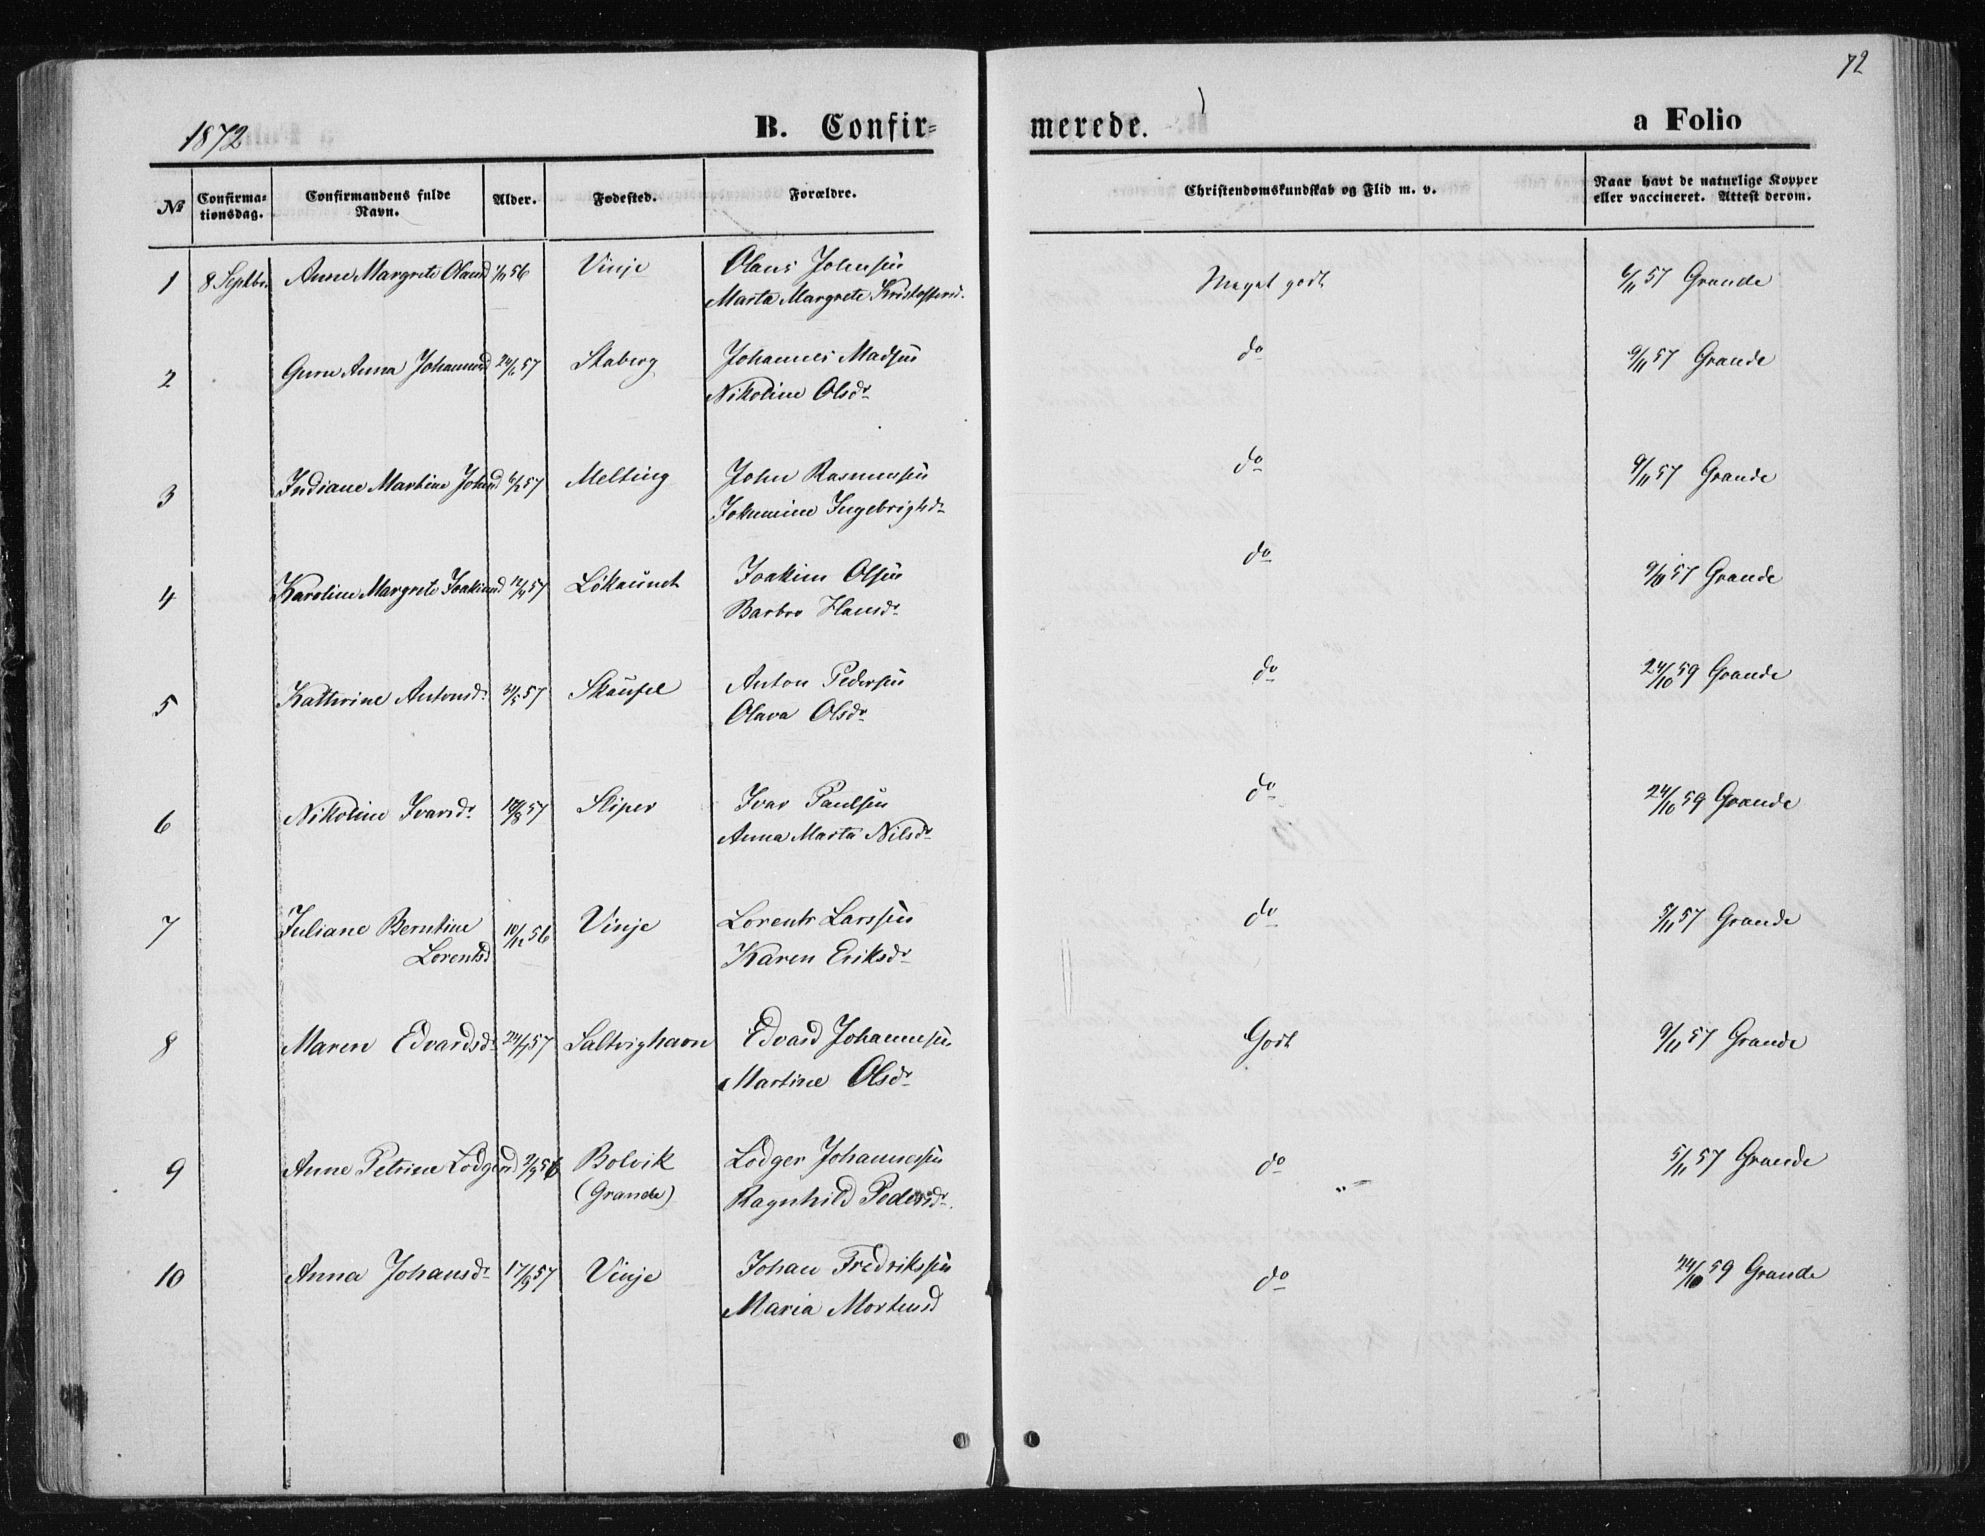 72
1872
B. Confir=
merede.
a Folio
No
Confirma-
tionsdag.
Confirmandens fulde
Navn.
Alder.
Fødested.
Forældre.
Christendomskundskab og Flid m. v.
Naar havt de naturlige Kopper
eller vaccineret. Attest derom.
1 8 Septbr Anne Margrete Olausd 56 Vinje Olaus Johnsen Meget godt 6/11 57 Grande
Marta Margrete Kristoffersd.
2 Guru Anna Johannesd 24/6 57 Staberg Johannes Madsen do 9/11 57 Grande
Nikoline Olsdr
3 Indiane Martine Johnsd 6/2 57 Melting John Rasmussen do 9/11 57 Grande
Johannine Ingebrigtsdr
4 Karoline Margrete Joakimsd 12/4 57 Løkaunet Joakim Olsen do 9/11 57 Grande
Barbro Hansdr
5 Kathrine Antonsdr 31/5 57 Skaufel Anton Pedersen do 24/10 59 Grande
Olava Olsdr
6 Nikoline Ivarsdr 18/8 57 Sliper Ivar Paulsen do 24/10 59 Grande
Anna Marta Nilsdr
7 Juliane Berntine 10/12 56 Vinje Lorents Larssen do 5/11 57 Grande
Lorentsd Karen Eriksdr
8 Maren Edvardsdr 24/7 57 Saltvighavn Edvard Johannesen Godt 9/11 57 Grande
Martine Olsdr
9 Anne Petrine Lodgersd 2/9 56 Bolvik Lodger Johannessen do 5/11 57 Grande
(Grande) Ragnhild Pedersdr.
10 Anna Johansdr 17/9 57 Vinje Johan Fredrikssen do 24/10 59 Grande
Maria Mortensd